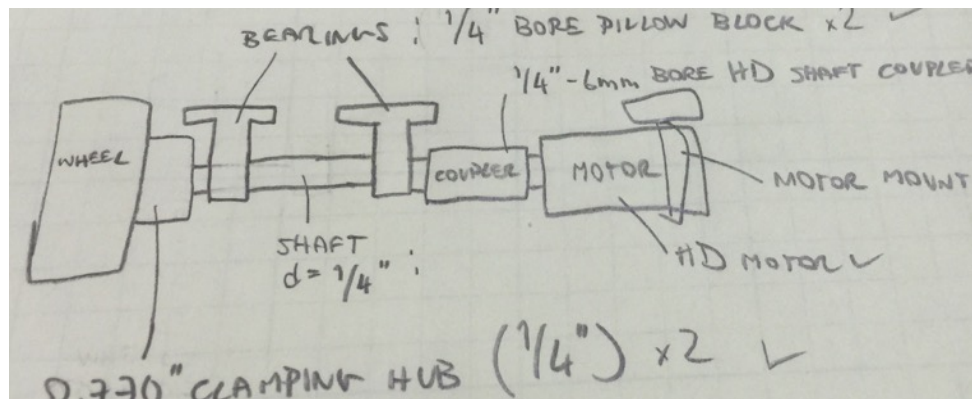 BEARINGS : 1/4" BORE PILLOW BLOCK x2 ✓
1/4"-6mm BORE HD SHAFT COUPLER
WHEEL
COUPLER
MOTOR
MOTOR MOUNT
SHAFT
d = 1/4" :
HD MOTOR ✓
0.770" CLAMPING HUB (1/4") x2 ✓